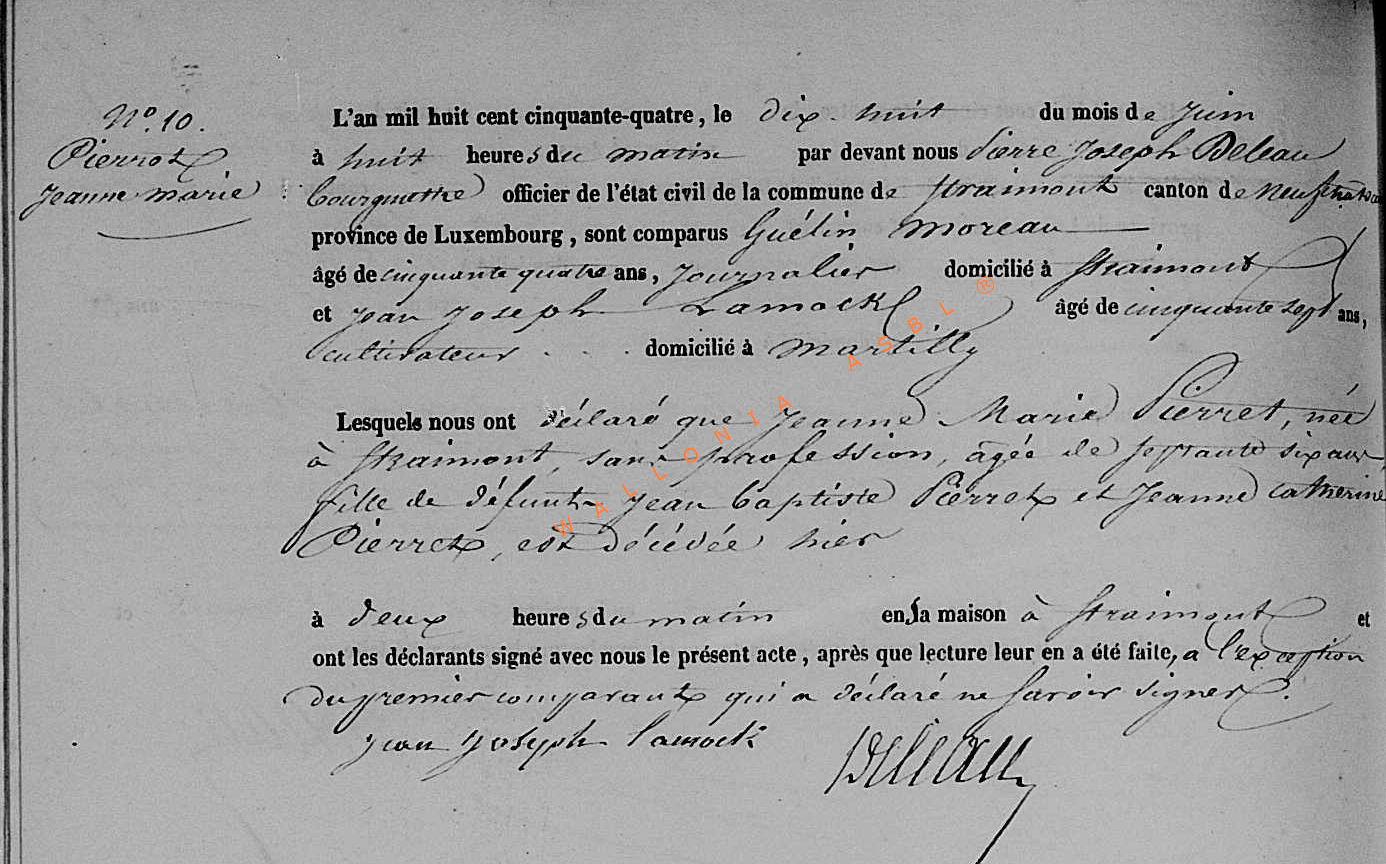 N°. 10.
Pierret
Jeanne Marie
L'an mil huit cent cinquante-quatre, le dix-huit du mois de Juin
à huit heures du matin par devant nous Pierre Joseph Deleau
bourgmestre officier de l'état civil de la commune de Straimont canton de Neufchateau
province de Luxembourg, sont comparus Guélin Moreau
âgé de cinquante quatre ans, journalier domicilié à Straimont
et Jean Joseph Lamock âgé de cinquante sept ans,
cultivateur domicilié à Martilly
Lesquels nous ont déclaré que Jeanne Marie Pierret, née
à Straimont, sans profession, agée de septante six ans,
fille de défunts Jean baptiste Pierret et Jeanne Catherine
Pierret, est décédée hier
à deux heures du matin en sa maison à Straimont et
ont les déclarants signé avec nous le présent acte, après que lecture leur en a été faite, a l'exception
du premier comparant qui a déclaré ne savoir signer.
Jean Joseph lamock Deleau
WALLONIA ASBL ®